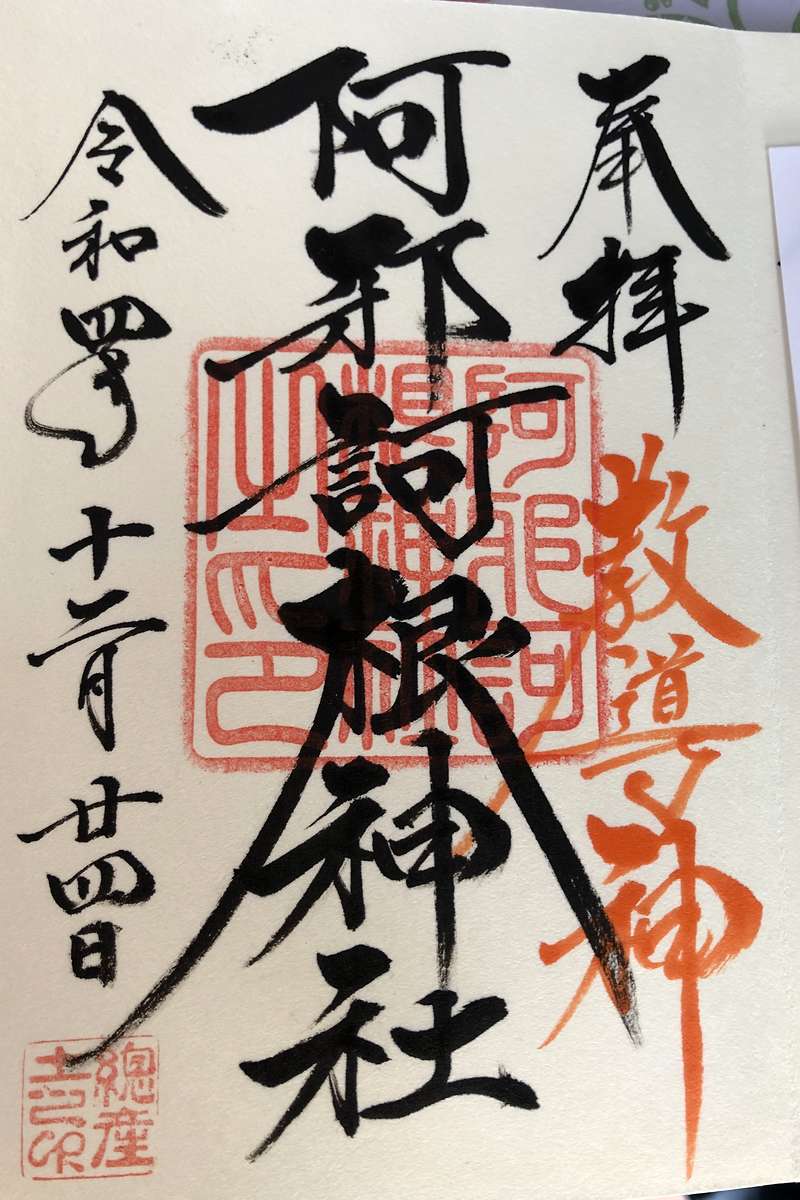 奉拝
教導神
阿邪訶根神社
阿邪訶
根神社
之印
令和四年十二月廿四日
總産
土之印